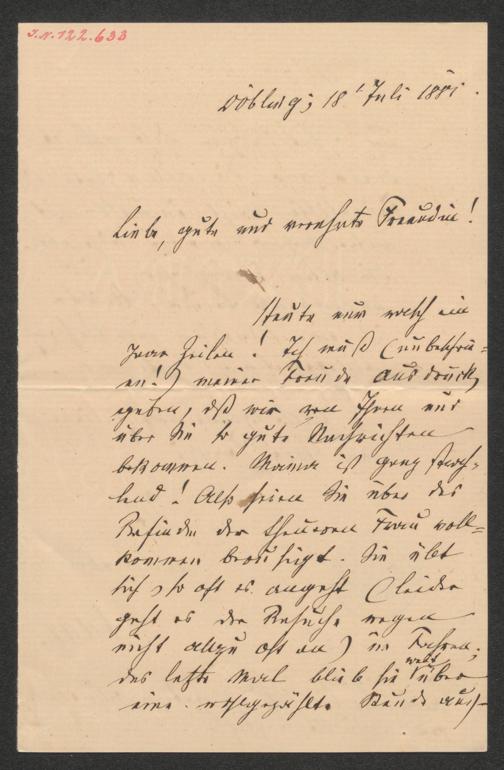 I.N. 122.633
Döbling, 18t Juli 1881.
Liebe, gute und verehrte Freundin!
Heute nur rasch ein
paar Zeilen! Ich muß (unbeschrie-
en!) meiner Freude Ausdruck
geben, dß wir von Ihnen und
über Sie so gute Nachrichten
bekommen. Mama ist ganz strah-
lend! Also seien Sie über das
Befinden der theueren Frau voll-
kommen beruhigt. Sie übt
sich, so oft es angeht (leider
geht es der Besuche wegen
nicht allzu oft an) im Fahren;
das letzte Mal blieb sie weit über
eine wohlgezählte Stunde aus,